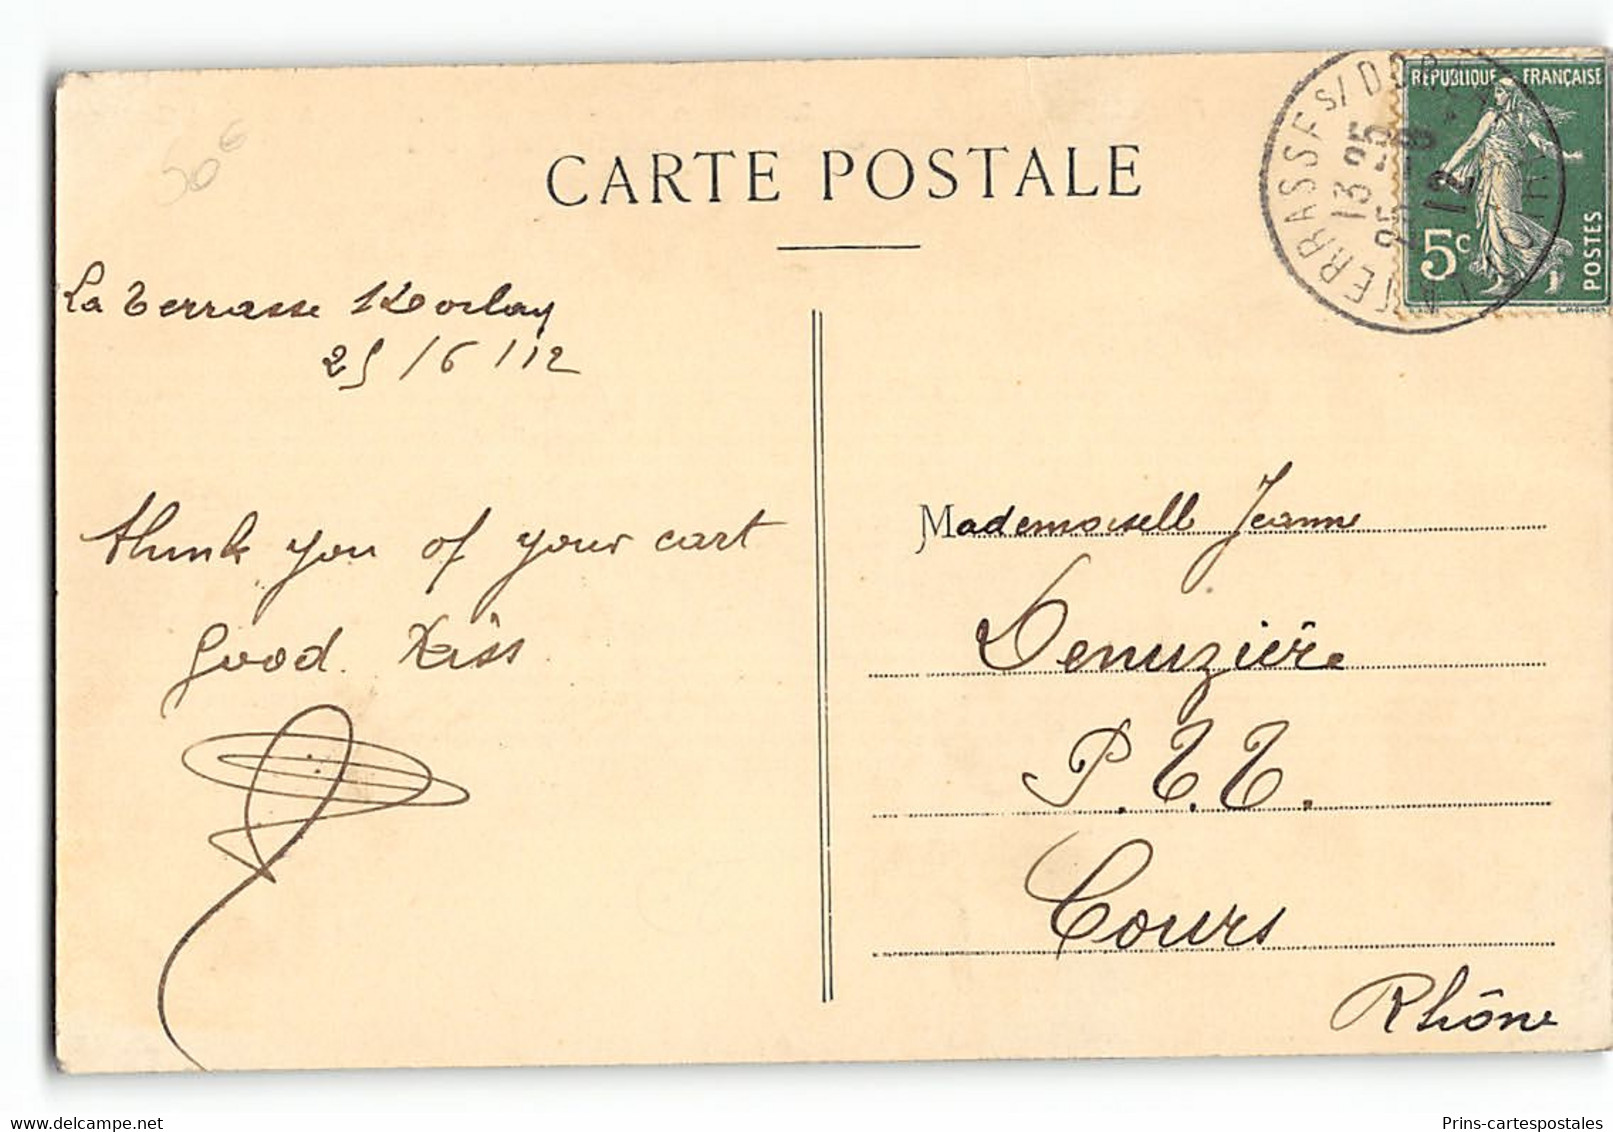 CARTE POSTALE
50€
RÉPUBLIQUE FRANÇAISE
5c
POSTES
13 25
25 - 6
12
LOIRE
La Terrasse s/ Dorlay
25/6/12
think you of your cart
good Kiss
Mademoiselle Jeanne
Denuzière
P.T.T.
Cours
Rhône
Prins-cartespostales